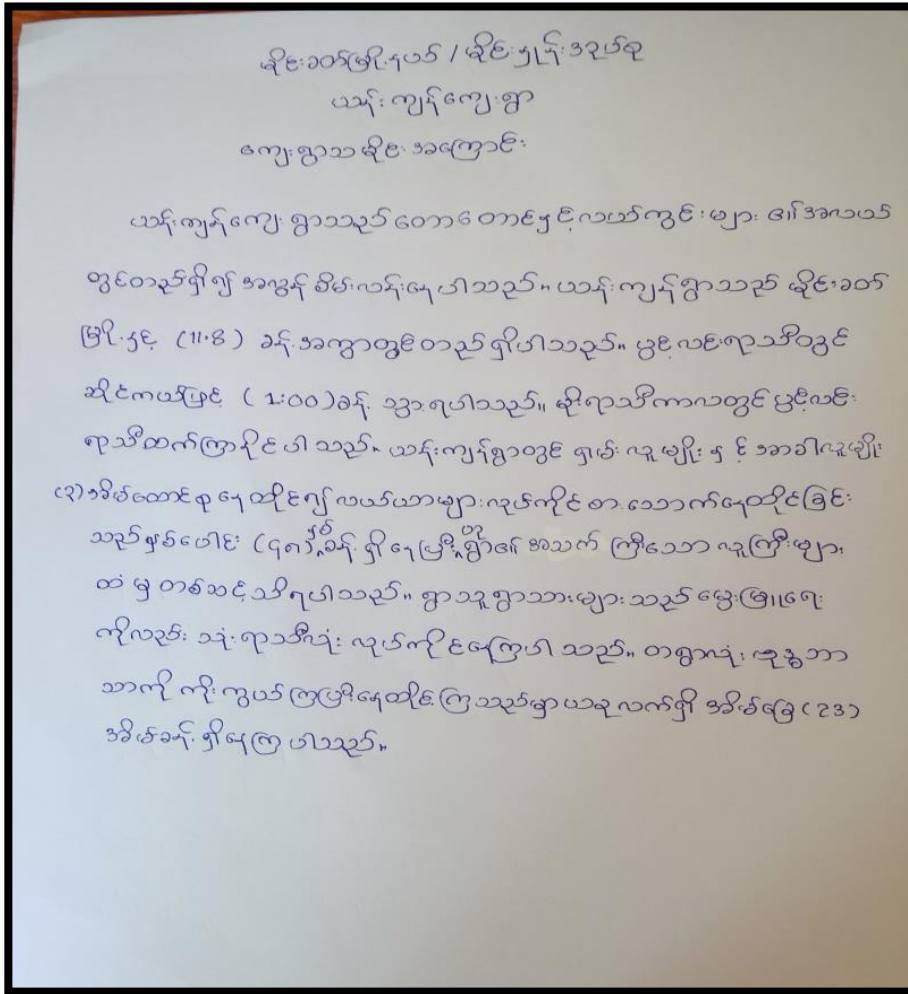 မိုင်းခတ်မြို့နယ် / မိုင်းနှုန်းအုပ်စု
ယန်းကျန်ကျေးရွာ
ကျေးရွာသမိုင်းအကြောင်း
ယန်းကျန်ကျေးရွာသည် တောတောင်နှင့်လယ်ကွင်းများ ၏အလယ်
တွင်တည်ရှိ၍ အလွန် စိမ်းလန်းနေပါသည်။ ယန်းကျန်ရွာသည် မိုင်းခတ်
မြို့နှင့် (11.8) ခန့်အကွာတွင်တည်ရှိပါသည်။ ပွင့်လင်းရာသီတွင်
ဆိုင်ကယ်ဖြင့် (1:00) ခန့် သွားရပါသည်။ မိုးရာသီကာလတွင် ပွင့်လင်း
ရာသီထက်ကြာနိုင်ပါသည်။ ယန်းကျန်ရွာတွင် ရှမ်းလူမျိုး နှင့် အာခါလူမျိုး
(၃)အိမ်ထောင်စု နေထိုင်၍ လယ်ယာများလုပ်ကိုင် စားသောက်နေထိုင်ခြင်း
သည်နှစ်ပေါင်း (၄၈)နှစ်ခန့် ရှိနေပြီးဟုရွာ၏ အသက် ကြီးသော လူကြီးများ
ထံ မှ တစ်ဆင့်သိရပါသည်။ ရွာသူရွာသားများသည် မွေးမြူရေး
ကိုလည်း သုံးရာသီလုံး လုပ်ကိုင်နေကြပါ သည်။ တရွာလုံး ဗုဒ္ဓဘာ
သာကို ကိုးကွယ် ကြပြီးနေထိုင်ကြသည်မှာ ယခုလက်ရှိ အိမ်ခြေ (23)
အိမ်ခန့်ရှိနေကြ ပါသည်။